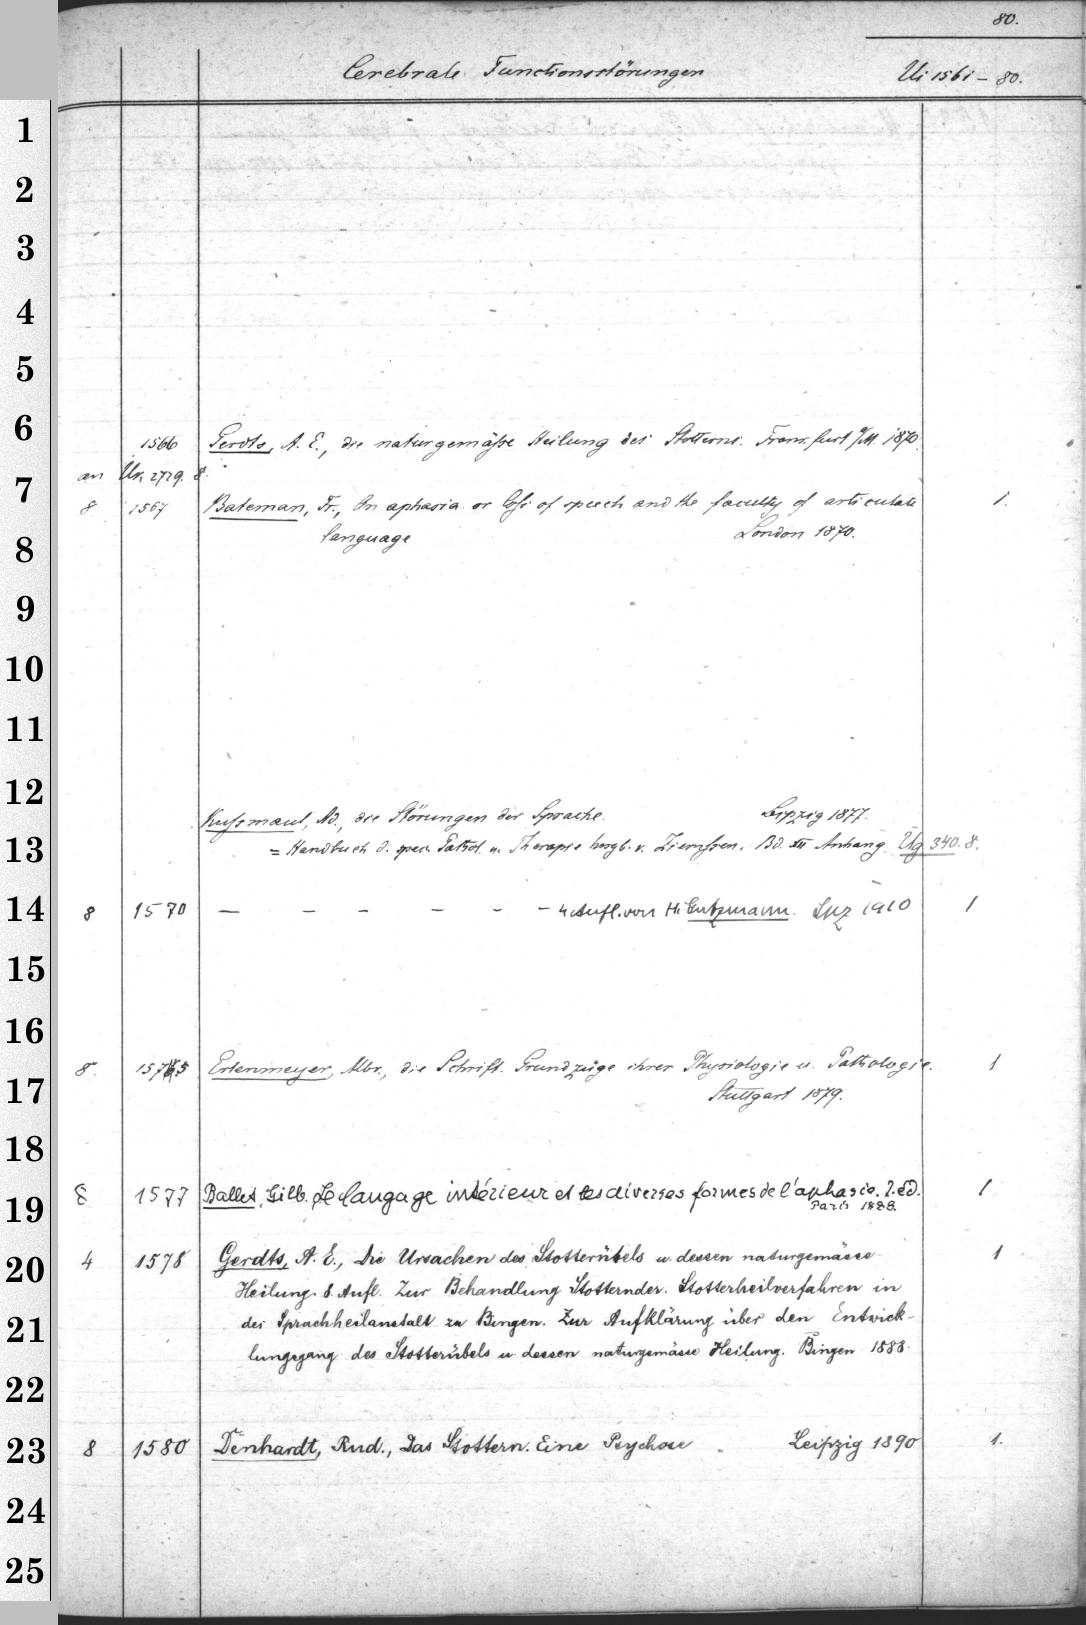 80.
Cerebrale Functionsstörungen Ui 1561-80.
1
2
3
4
5
6 1566 Gerdts, A. E., die naturgemäße Heilung des Stotterns. Frankfurt a/M. 1870.
an Uk 2729. 8.
7 8 1567 Bateman, Fr., On aphasia or loss of speech and the faculty of articulate 1.
8 language London 1870.
9
10
11
12 Kußmaul, Ad., die Störungen der Sprache. Leipzig 1877.
13 = Handbuch d. spec. Pathol. u. Therapie hrsgb. v. Ziemssen. Bd. XII Anhang. Ug 340. 8.
14 8 1570 — – – – – – 4 Aufl. von H. Gutzmann. Lpz 1910 1
15
16
8. 1575 Erlenmeyer, Albr., die Schrift. Grundzüge ihrer Physiologie u. Pathologie. 1
17 Stuttgart 1879.
18
19 8 1577 Ballet, Gilb. Le langage intérieur et les diverses formes de l'aphasie. 2. éd. 1
Paris 1888.
20 4 1578 Gerdts, A. E., Die Ursachen des Stotterübels u. dessen naturgemässe 1
Heilung. 8. Aufl. Zur Behandlung Stotternder. Stotterheilverfahren in
21 der Sprachheilanstalt zu Bingen. Zur Aufklärung über den Entwick-
lungsgang des Stotterübels u. dessen naturgemässe Heilung. Bingen 1888.
22
23 8 1580 Denhardt, Rud., Das Stottern. Eine Psychose. Leipzig 1890 1.
24
25